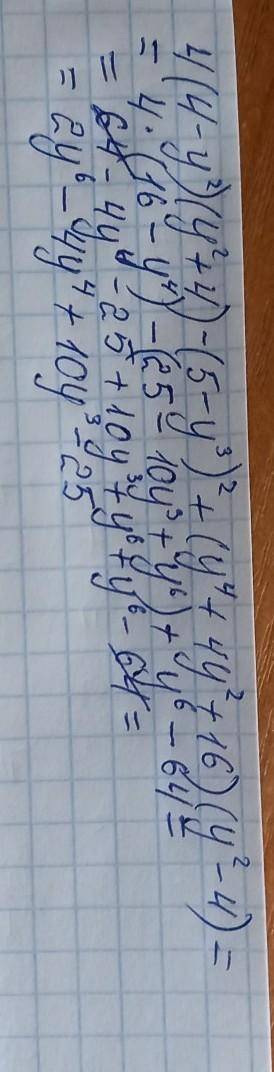 4(4-y²)(y²+4)-(5-y³)²+(y⁴+4y²+16)(y²-4)=
=4·(16-y⁴)-(25-10y³+y⁶)+y⁶-64=
=64-4y⁴-25+10y³+y⁶+y⁶-64=
=2y⁶-4y⁴+10y³-25